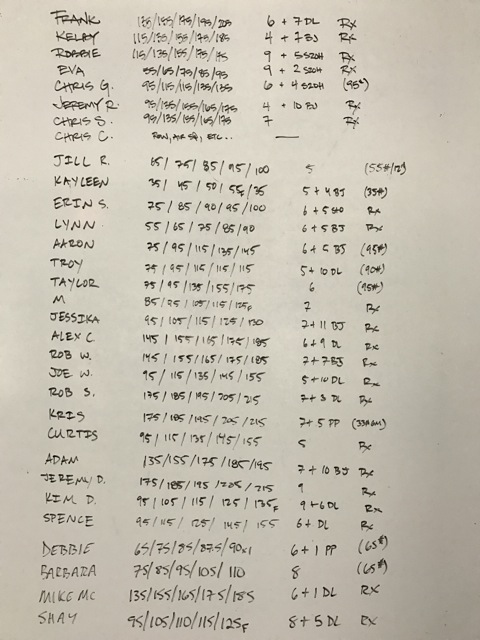 FRANK 135/155/175/195/205 6 + 7 DL Rx
KELBY 115/135/155/175/185 4 + 7 BJ Rx
ROBBIE 115/135/155/175/175 9 + 5 S2OH Rx
EVA 55/65/75/85/95 9 + 2 S2OH Rx
CHRIS G. 95/115/115/135/135 6 + 4 S2OH (95#)
JEREMY R. 95/135/155/165/175 4 + 10 BJ Rx
CHRIS S. 95/135/155/165/175 7 Rx
CHRIS C. ROW, AIR SQ, ETC... —
JILL R. 65 / 75 / 85 / 95 / 100 5 (55#/12")
KAYLEEN 35 / 45 / 50 / 55F / 35 5 + 4 BJ (35#)
ERIN S. 75 / 85 / 90 / 95 / 100 6 + 5 Rx
LYNN 55 / 65 / 75 / 85 / 90 6 + 5 BJ Rx
AARON 75 / 95 / 115 / 135 / 145 6 + 5 BJ (95#)
TROY 75 / 95 / 115 / 115 / 115 5 + 10 DL (90#)
TAYLOR 75 / 95 / 135 / 155 / 175 6 (95#)
M 85 / 95 / 105 / 115 / 125F 7 Rx
JESSIKA 95 / 105 / 115 / 125 / 130 7 + 11 BJ Rx
ALEX C. 145 / 155 / 165 / 175 / 185 6 + 9 DL Rx
ROB W. 145 / 155 / 165 / 175 / 185 7 + 7 BJ Rx
JOE W. 95 / 115 / 135 / 145 / 155 5 + 10 DL Rx
ROB S. 175 / 185 / 195 / 205 / 215 7 + 3 DL Rx
KRIS 175 / 185 / 195 / 205 / 215 7 + 5 PP
CURTIS 95 / 115 / 135 / 145 / 155 5 Rx
ADAM 135 / 155 / 175 / 185 / 195 7 + 10 BJ Rx
JEREMY D. 175 / 185 / 195 / 205 / 215 9 Rx
KIM D. 95 / 105 / 115 / 125 / 135F 9 + 6 DL Rx
SPENCE 95 / 115 / 125 / 145 / 155 6 + DL Rx
DEBBIE 65/75/85/87.5/90x1 6 + 1 PP (65#)
BARBARA 75/85/95/105/ 110 8 (65#)
MIKE MC 135/155/165/175/185 6 + 1 DL RX
SHAY 95/105/110/115/125F 8 + 5 DL RX